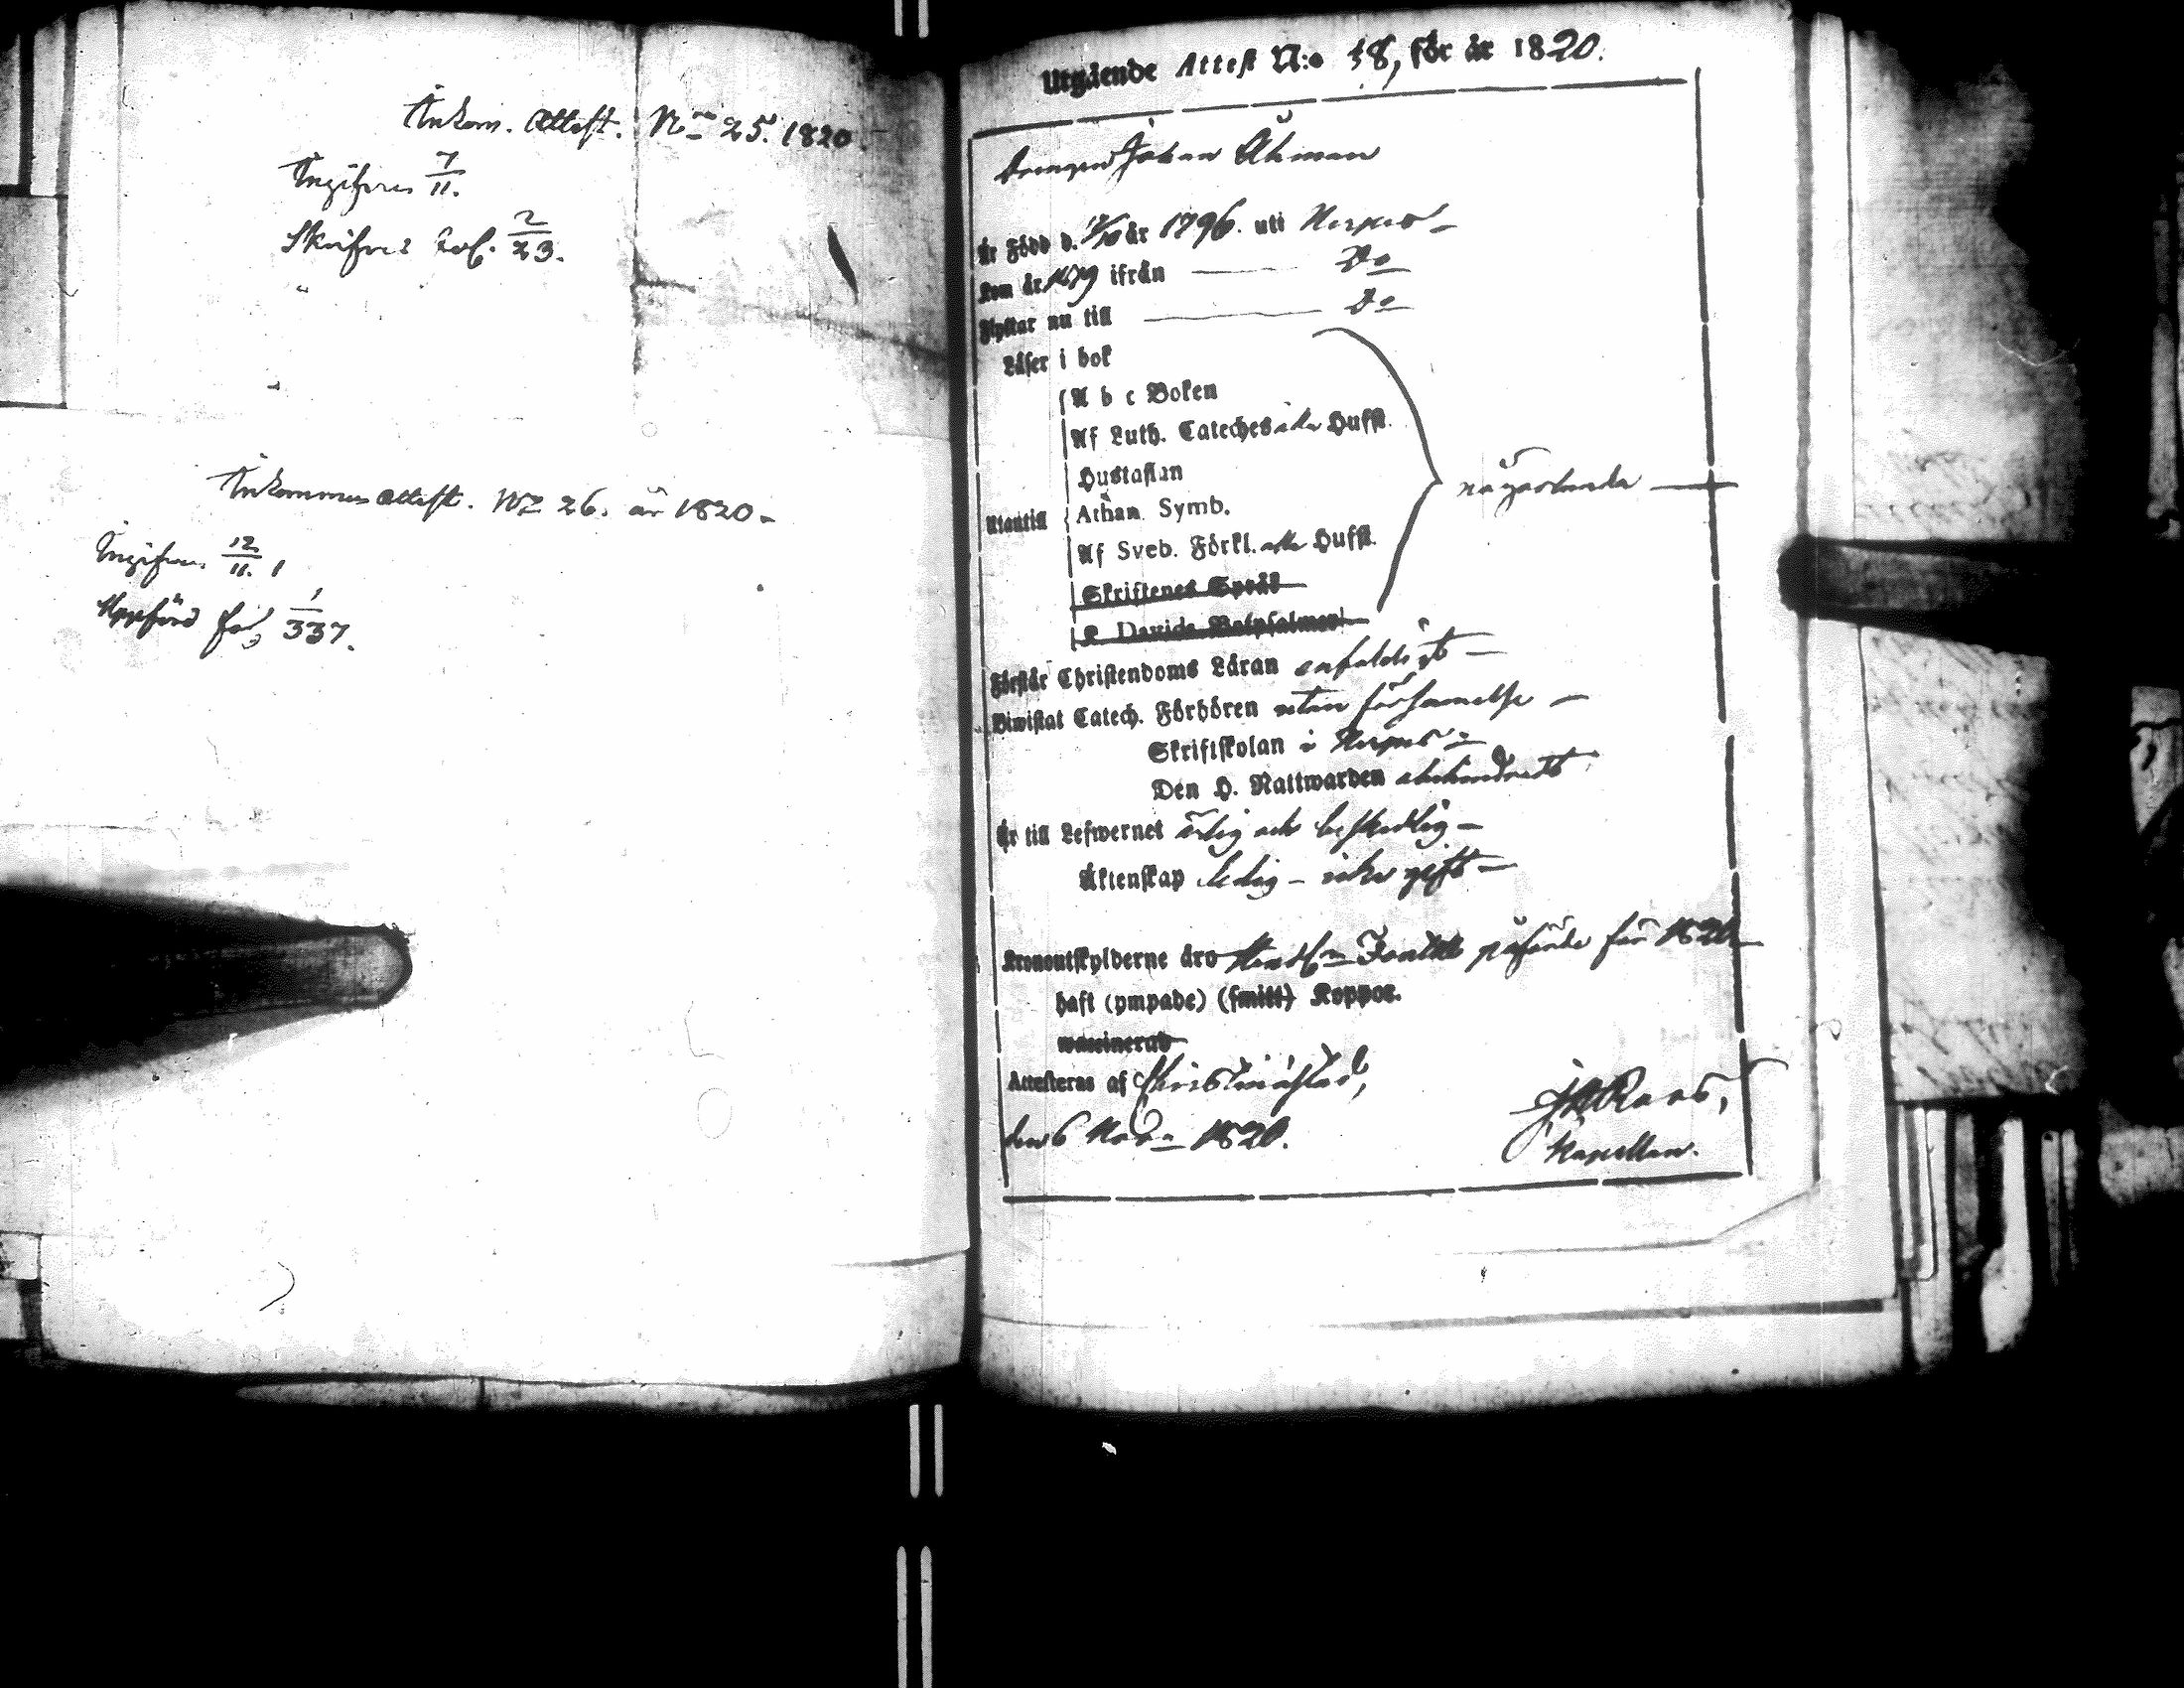 Ankom. Attest. N:o 25. 1820.
Ingifven 7/11.
Skrifves Fol. 2/23.
Ankommen attest. N:o 26. år 1820-
Ingifven 12/11.
Uppförd fol. 1/337.
Utgående Attest N:o 38, för år 1820.
Drengen Johan Åhman
Är Född d. år 1796. uti Nerpes -
Kom år 1819 ifrån — Do
Flyttar nu till — Do
Läser i bok
A b c Boken
Af Luth. Cateches alla Hufst.
Hustaflan
någorlunda —
Utantill
Athan. Symb.
Af Sveb. Förkl. alla Hufst.
Skriftenes Språk
K. Davids Botpsalmer
Förstår Christendoms Läran enfaldigt -
Biwistat Catech. Förhören utan försummelse -
Skriftskolan i Nerpes -
Den H. Nattwarden
Är till Lefwernet ärlig och beskedlig -
Äktenskap ledig - icke gift -
Kronoutskylderne äro påförde för 1820
haft (ympade) (smitt) Koppor.
waccinerad
Attesteras af Christinæstad,
den 6 Nov. 1820.
Kapellan.